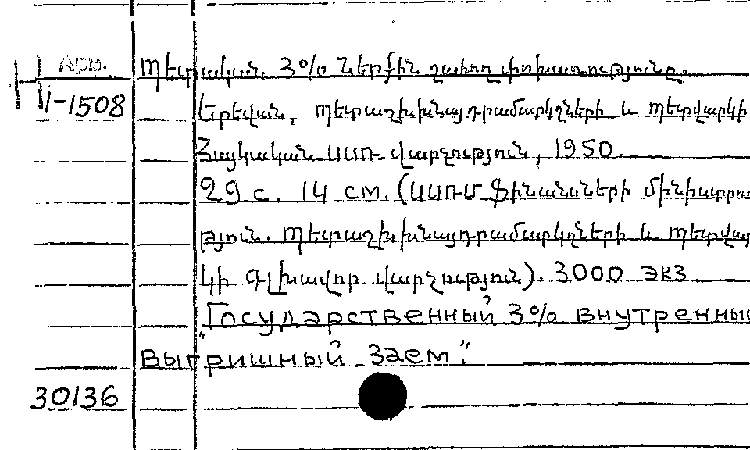 Арм.
Պետական 3% ներքին շահող փոխառությունը.
1-1508
Երեվան, Պետաշխխնայդրամարկղների և պետվարկի
Հայկական ՍՍՌ վարչություն, 1950.
29 с. 14 см. (ՍՍՌՄ Ֆինանսների մինիստրու
թյուն. Պետաշխխնայդրամարկղների և պետվար
կի գլխավոր վարչություն). 3000 экз
"Государственный 3% внутренный
выгришный заем".
30136